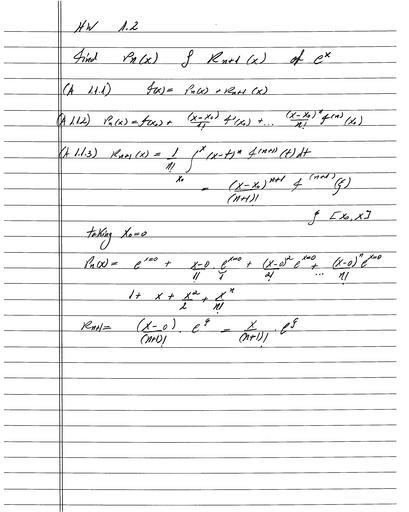 HW 1.2
find Pn(x) & Rn+1(x) of e^x
(A 1.1.1) f(x) = Pn(x) + Rn+1(x)
(A 1.1.2) Pn(x) = f(x₀) + (x-x₀)/1! f'(x₀) + ... (x-x₀)^n/n! f^(n)(x₀)
(A 1.1.3) Rn+1(x) = 1/n! ∫_x₀^x (x-t)^n f^(n+1)(t) dt
= (x-x₀)^(n+1)/(n+1)! f^(n+1)(ξ)
ξ [x₀, x]
taking x₀=0
Pn(x) = e^(x=0) + (x-0)/1! · e^(x=0)/1 + (x-0)^2/2! e^(x=0) + ... (x-0)^n/n! e^(x=0)
1 + x + x^2/2 + x^n/n!
Rn+1 = (x-0)/(n+1)! · e^ξ = x/(n+1)! · e^ξ